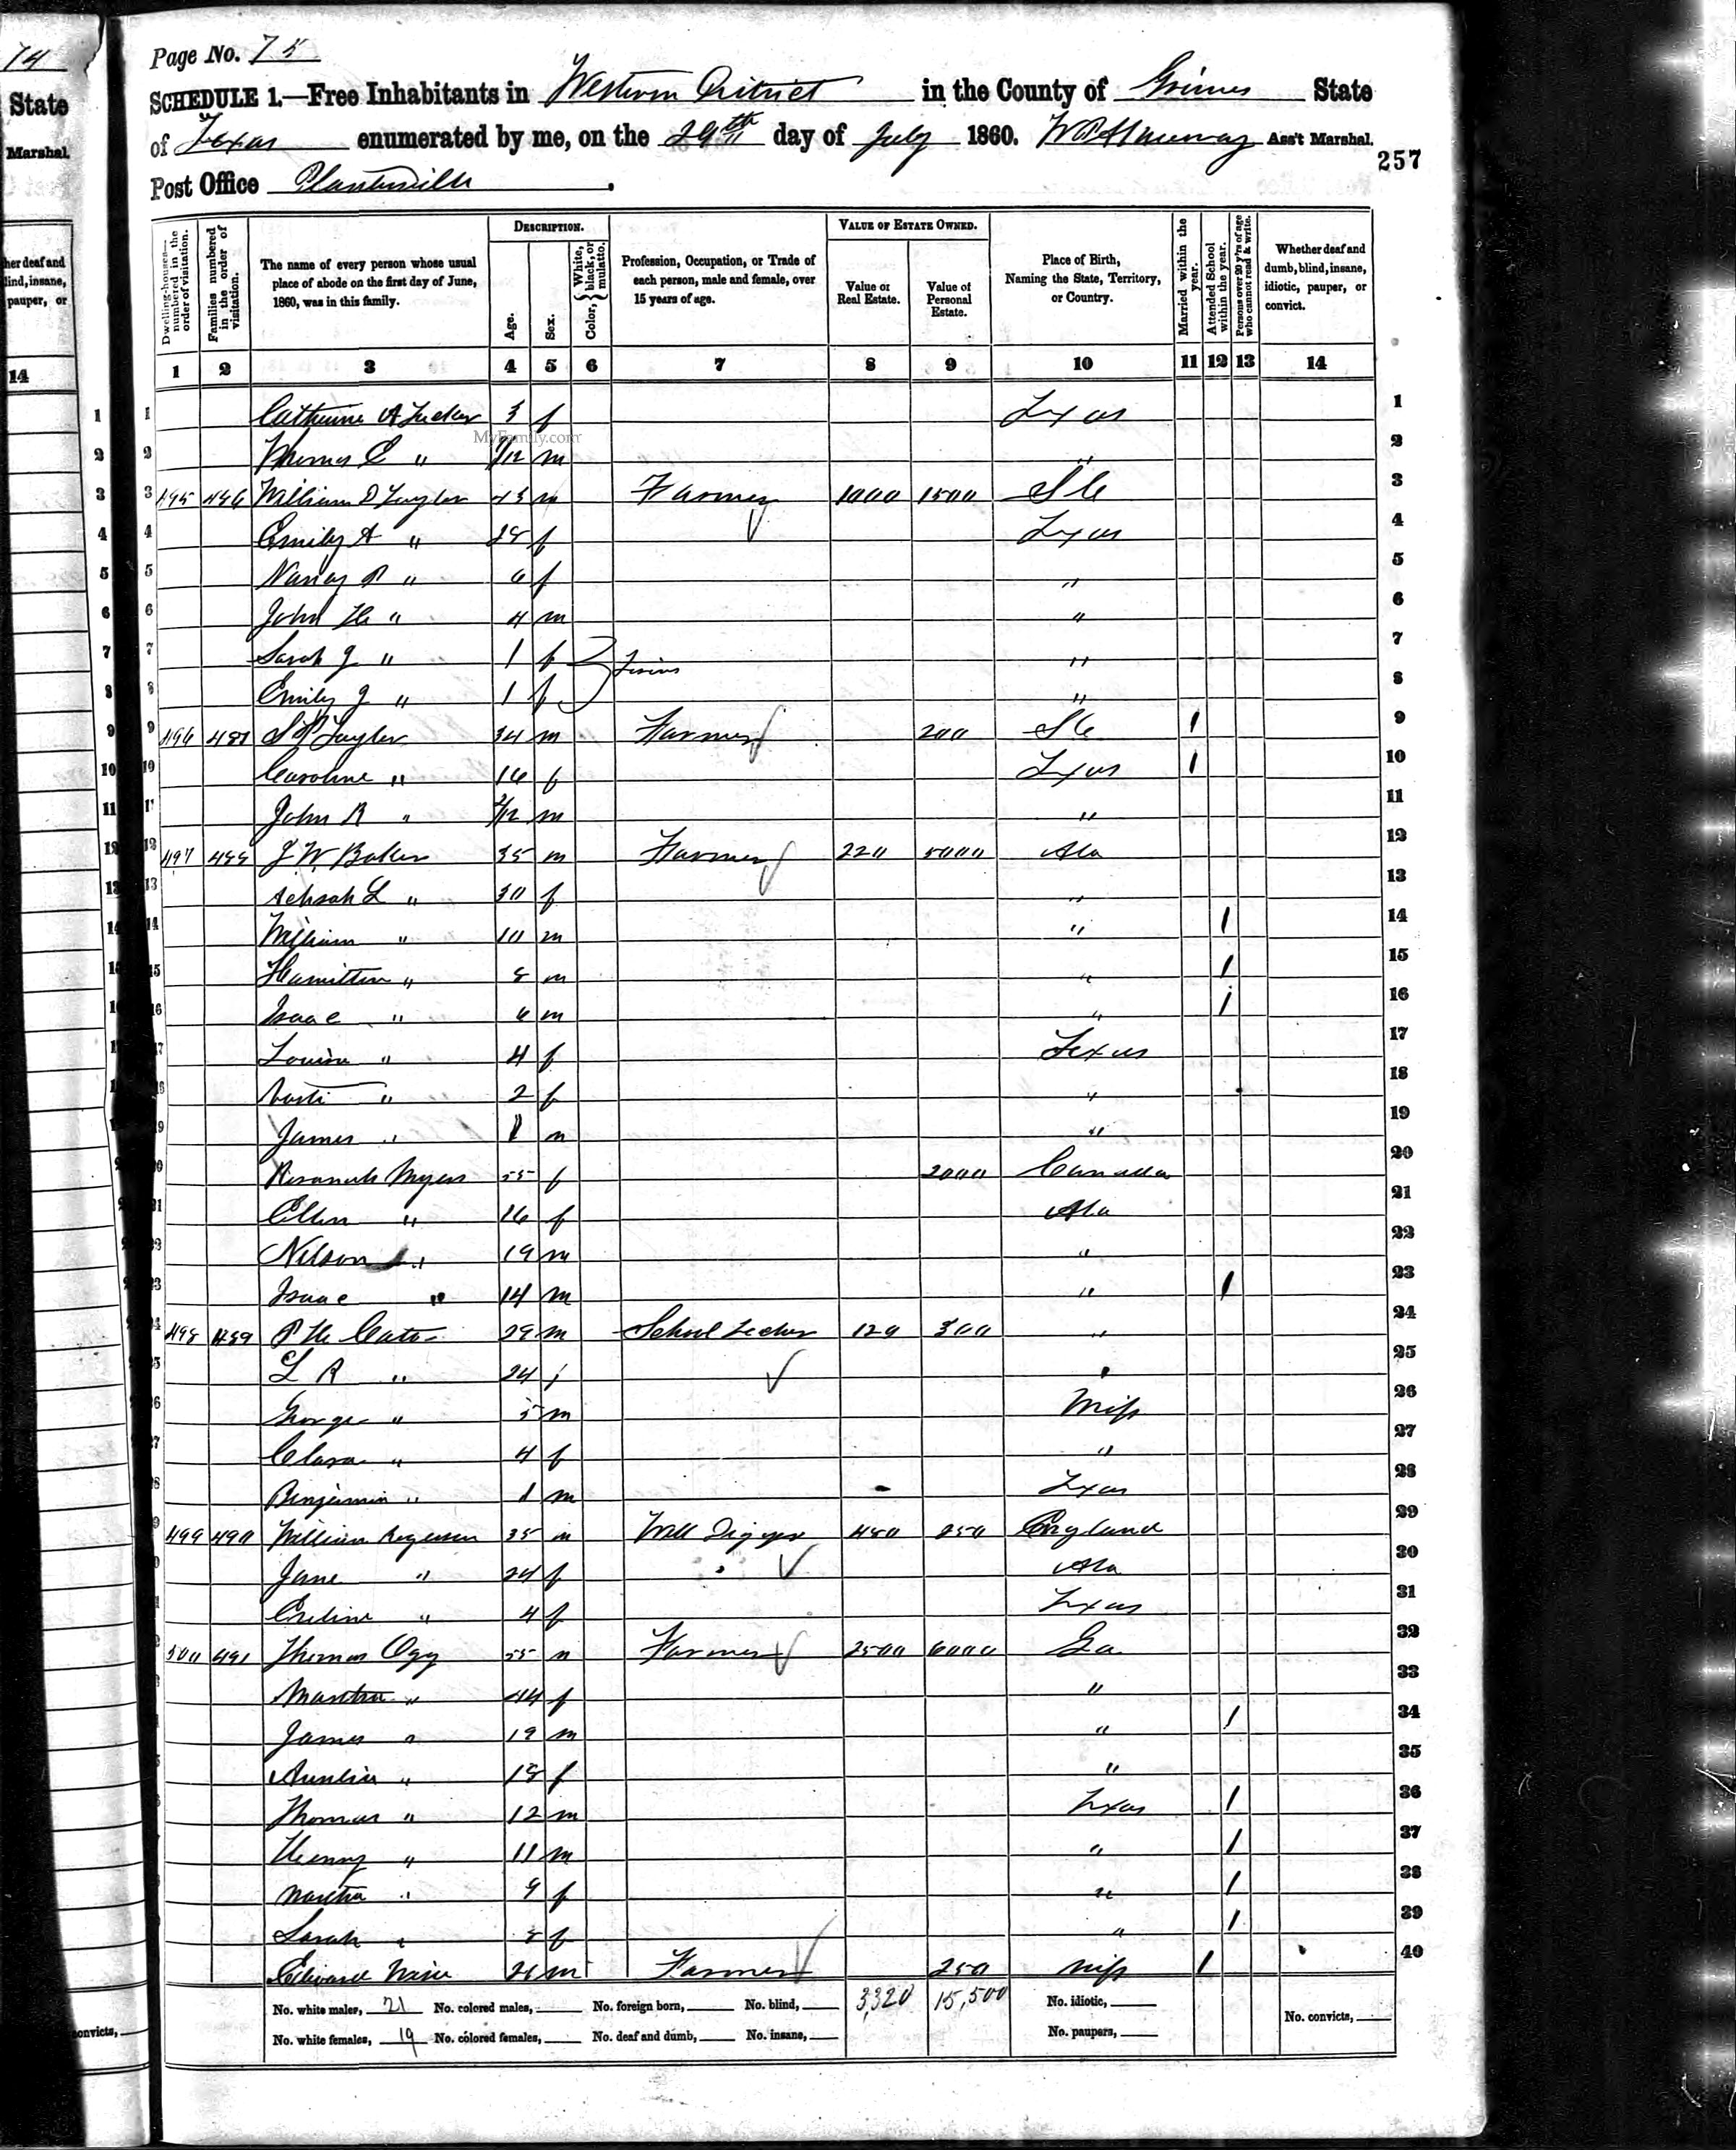 74
State
Marshal.
her deaf and
lind, insane,
pauper, or
14
Page No. 75
SCHEDULE 1.—Free Inhabitants in Western District in the County of Grimes State
of Texas enumerated by me, on the 29th day of July 1860. Ass't Marshal.
257
Post Office Plantersville.
Dwelling-houses—numbered in the order of visitation.
Families numbered in the order of visitation.
The name of every person whose usual place of abode on the first day of June, 1860, was in this family.
DESCRIPTION.
Age.
Sex.
Color, { White, black, or mulatto.
Profession, Occupation, or Trade of each person, male and female, over 15 years of age.
VALUE OF ESTATE OWNED.
Value of Real Estate.
Value of Personal Estate.
Place of Birth, Naming the State, Territory, or Country.
Married within the year.
Attended School within the year.
Persons over 20 y'rs of age who cannot read & write.
Whether deaf and dumb, blind, insane, idiotic, pauper, or convict.
1 2 3 4 5 6 7 8 9 10 11 12 13 14
1 Catherine A Tucker 3 f Texas 1
MyFamily.com
2 Thomas E " /12 m " 2
3 495 486 William D Taylor 43 m Farmer 1000 1500 S C 3
4 Emily A " 28 f Texas 4
5 Nancy R " 6 f " 5
6 John H " 4 m " 6
7 Sarah J " 1 f } Twins " 7
8 Emily J " 1 f " 8
9 496 487 Taylor 34 m Farmer 200 S C 1 9
10 Caroline " 16 f Texas 1 10
11 John R " 2/12 m " 11
12 497 488 J W Baker 35 m Farmer 220 5000 Ala 12
13 Achsah L " 30 f " 13
14 William " 10 m " 1 14
15 Hamilton " 8 m " 1 15
16 Isaac " 6 m " 1 16
17 Louisa " 4 f Texas 17
18 " 2 f " 18
19 James " 1 m " 19
20 Rosanah Myers 55 f 2000 Canada 20
21 Ellen " 26 f Ala 21
22 Nelson " 19 m " 22
23 Isaac " 14 m " 1 23
24 498 489 P H Cato 29 m School Techer 120 300 " 24
25 L R " 24 f " 25
26 George " 5 m Miss 26
27 Clara " 4 f " 27
28 Benjamin " 1 m Texas 28
29 499 490 William 35 m Well Digger 480 250 England 29
30 Jane " 24 f " Ala 30
31 " 4 f Texas 31
32 500 491 Thomas Ogg 55 m Farmer 2500 6000 Ga 32
33 Martha " 44 f " 33
34 James " 19 m " 1 34
35 " 18 f " 35
36 Thomas " 12 m Texas 1 36
37 Henry " 11 m " 1 37
38 Martha " 9 f " 1 38
39 Sarah " 8 f " 1 39
Edward 26 m Farmer 250 Miss 1 40
No. white males, 21 No. colored males, No. foreign born, No. blind, 3,320 15,500 No. idiotic,
No. convicts,
No. white females, 19 No. colored females, No. deaf and dumb, No. insane, No. paupers,
convicts,